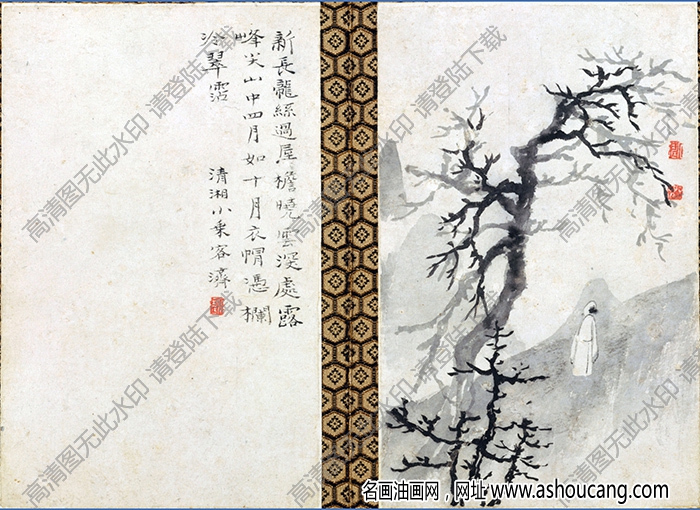 新長龍孫過屋檐曉雲深處露
峰尖山中四月如十月衣帽憑欄
冷翠霑
清湘小乘客濟
高清图无此水印 请登陆下载
高清图无此水印 请登陆下载
高清图无此水印 请登陆下载
高清图无此水印 请登陆下载
高清图无此水印 请登陆下载
高清图无此水印 请登陆下载
名画油画网，网址 www.ashoucang.com